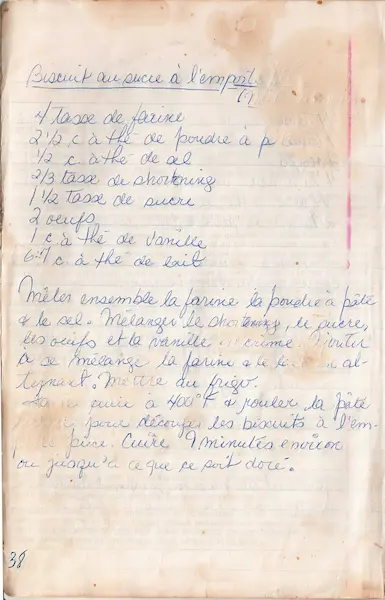 Biscuit au sucre à l'emporte
4 Tasse de farine
2 1/2 c à thé de poudre à p
1/2 c. à thé de sel
2/3 tasse de shortening
1 1/2 Tasse de sucre
2 oeufs
1 c à thé de vanille
c. à thé de lait
Mêler ensemble la farine la poudre à pâte
& le sel. Mélanger le shortening, le sucre,
les oeufs et la vanille en crème.
à se mélange la farine & le al-
ternant. Mettre au frigo.
cuire à 400°F & rouler la pâte
pour découper les biscuits à l'em-
pièce. Cuire 9 minutes environ
ou jusqu'à ce que ce soit doré.
38